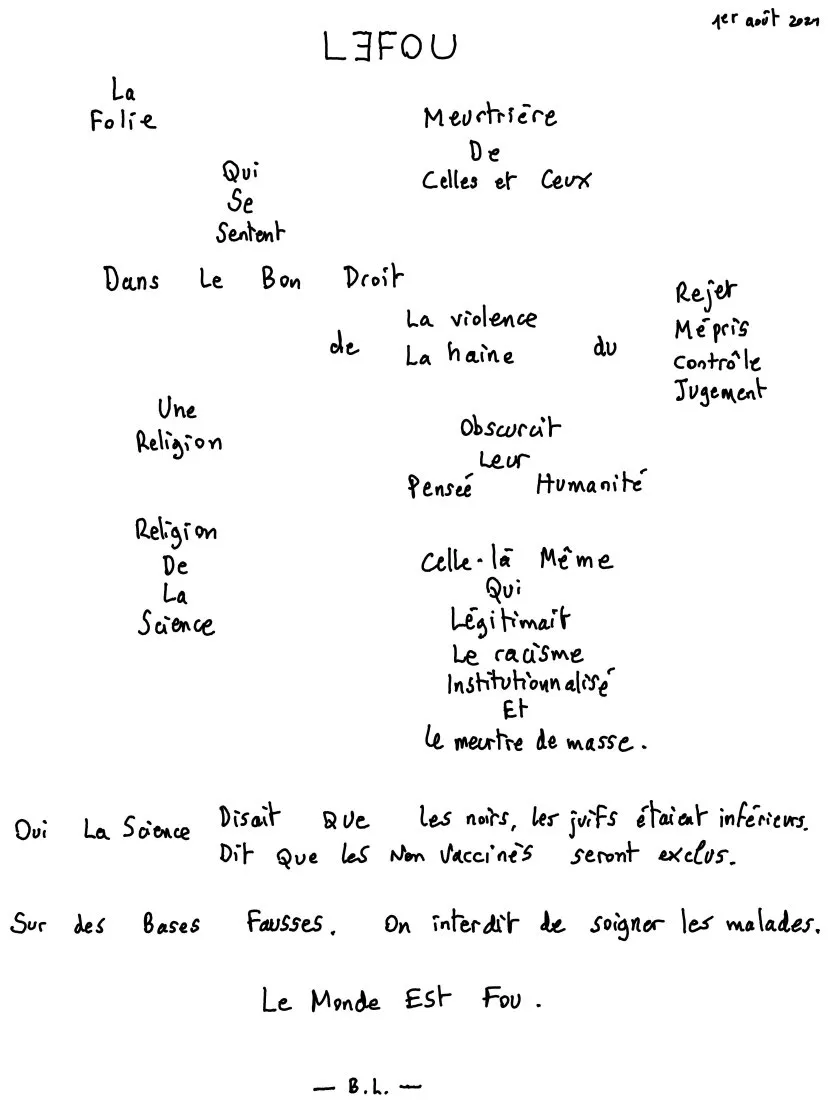 1er août 2021
LƎFOU
La
Folie
Meurtrière
De
Celles et Ceux
Qui
Se
Sentent
Dans Le Bon Droit
de
La violence
La haine
du
Rejet
Mépris
Contrôle
Jugement
Une
Religion
Obscurcit
Leur
Penseé Humanité
Religion
De
La
Science
Celle-là Même
Qui
Légitimait
Le racisme
Institutionnalisé
Et
le meurtre de masse.
Oui La Science
Disait Que les noirs, les juifs étaient inférieurs.
Dit Que les Non Vaccinés seront exclus.
Sur des Bases Fausses. On interdit de soigner les malades.
Le Monde Est Fou.
— B.L. —